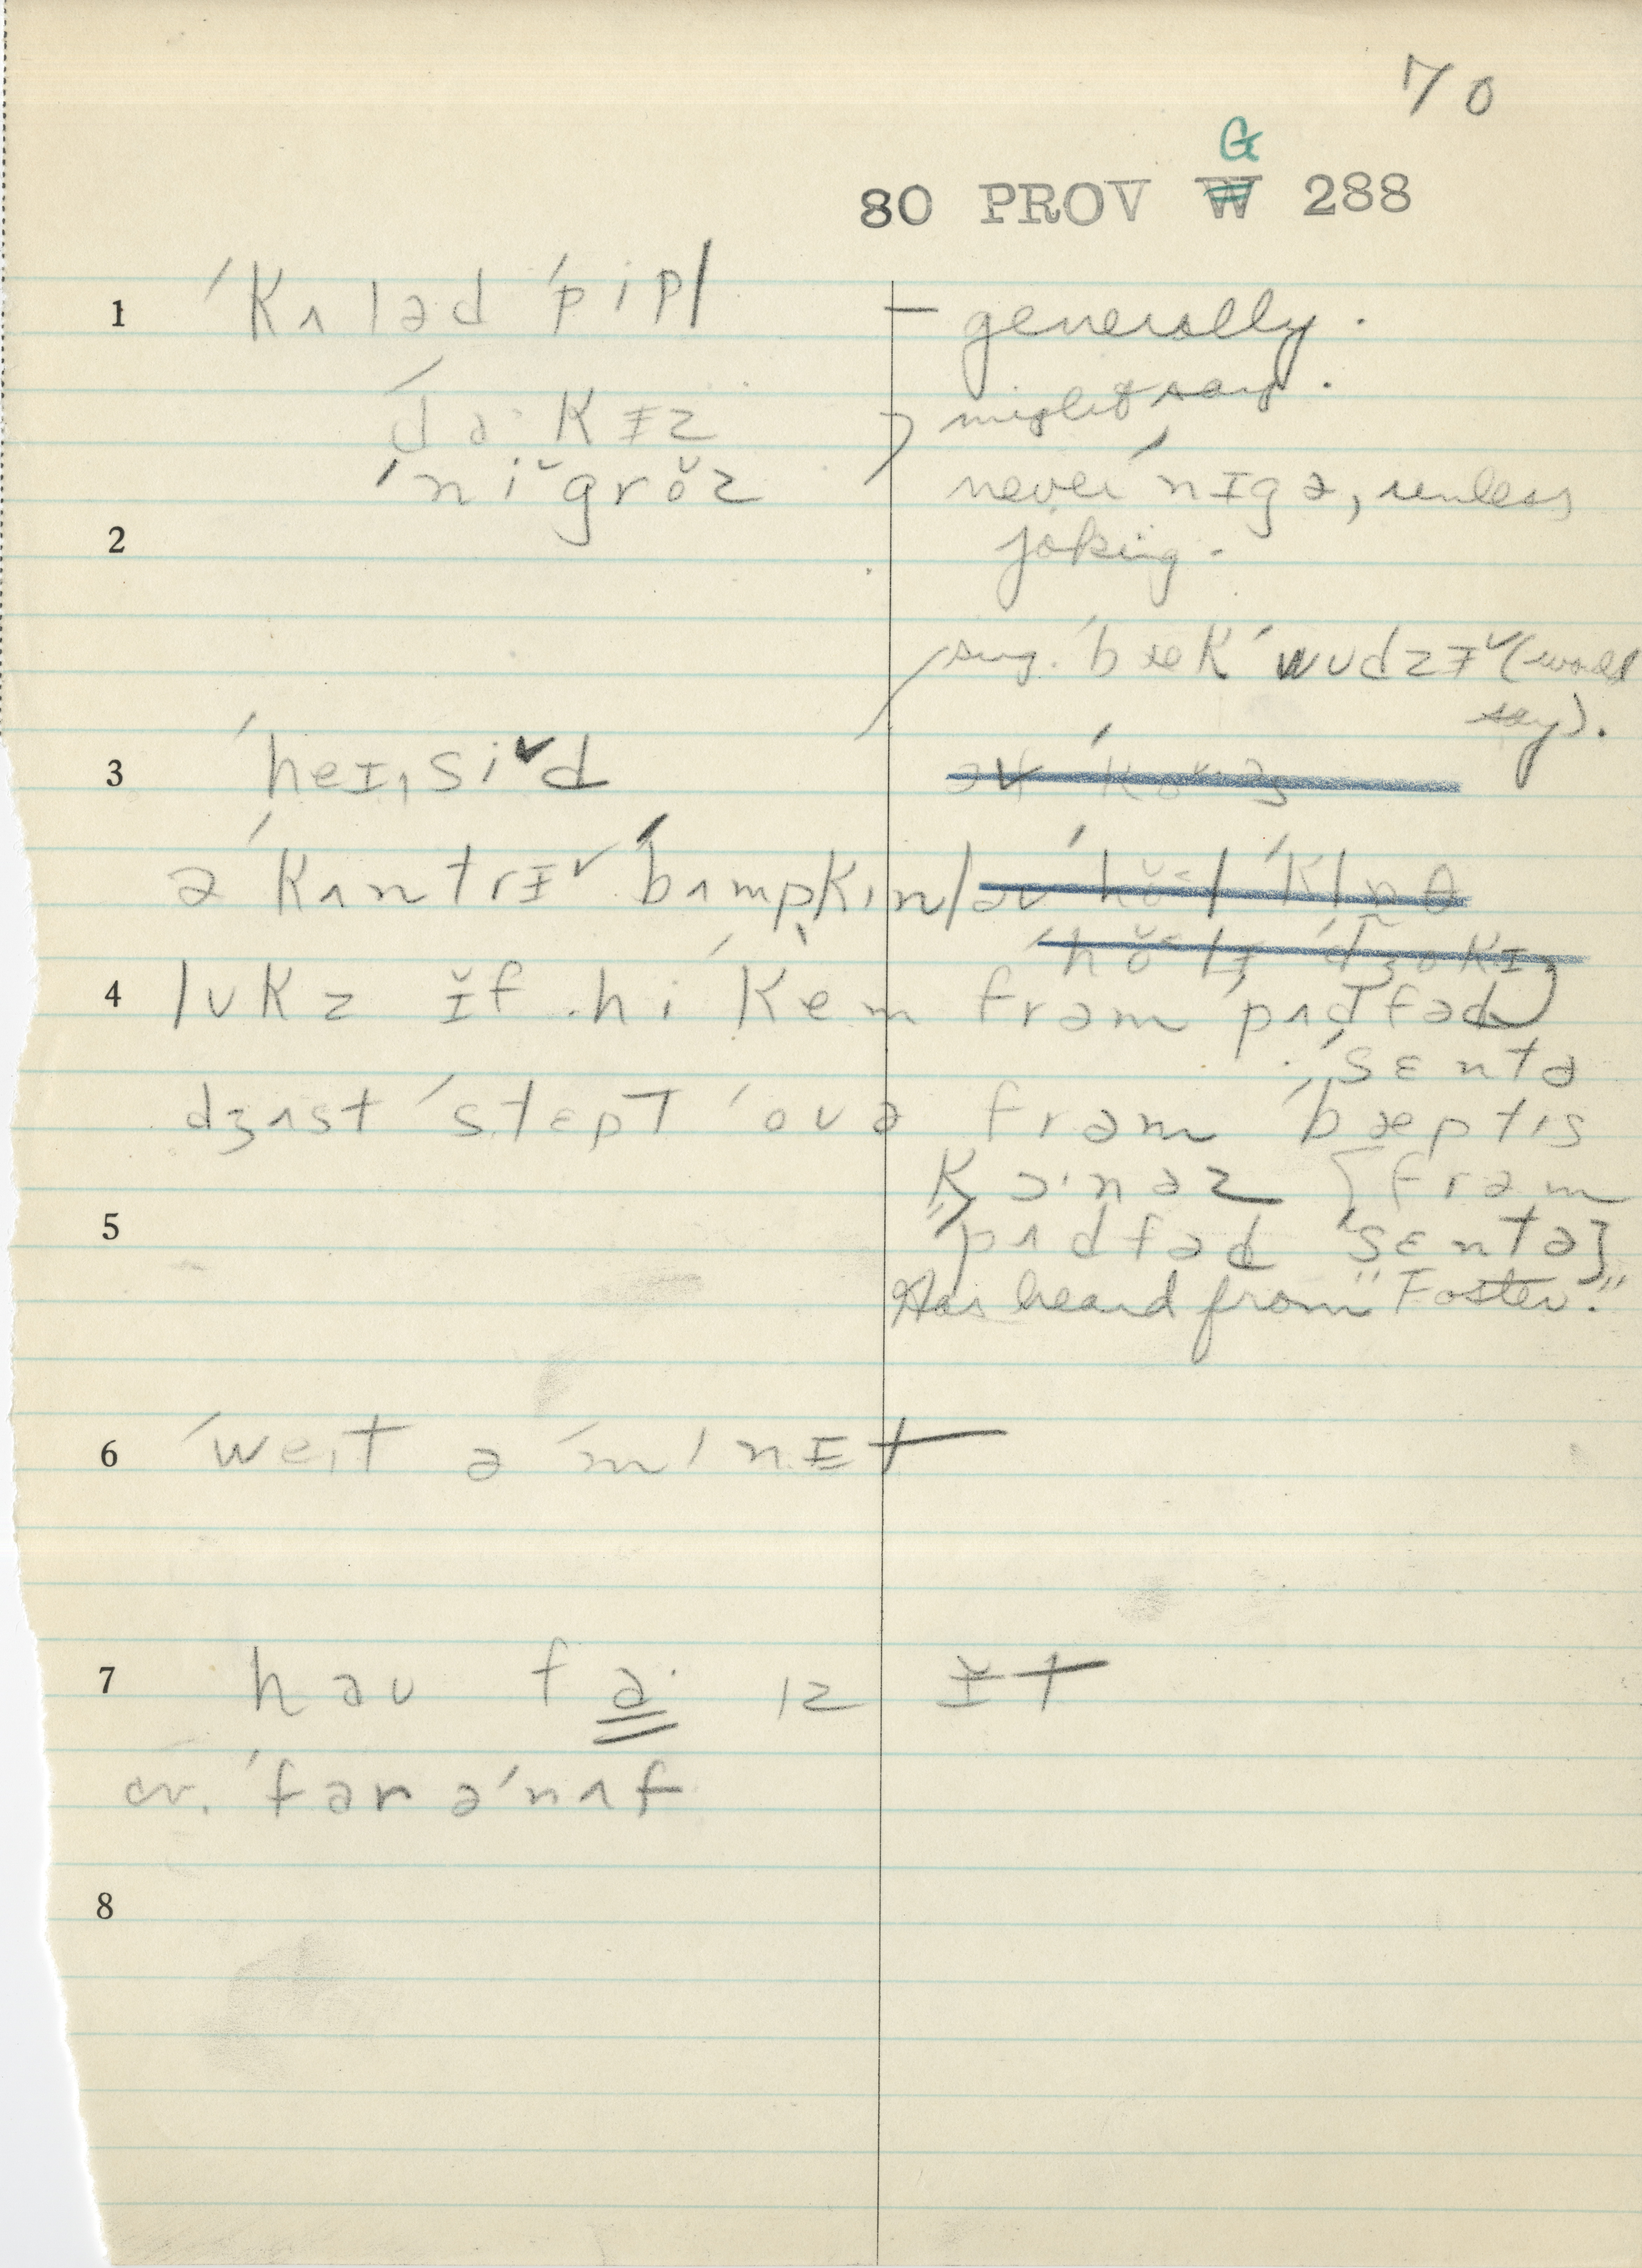 70
G
80 PROV W 288
1 ˈkʌləd ˈpipl̩ — generally.
ˈdaˑkɨz might say.
ˈni˘gro˘z never ˈnɪgə, unless
2 joking.
sing. ˈbækˈwudzɨˇ (would
say).
3 ˈheɪˌsiˇd
ə ˈkʌntrɨˇ ˈbʌmpkɪn
4 lʊkz ɨ̆f hi ˈkem frəm ˈpʌdfəd
ˈsɛntə
dʒʌst ˈstɛpt ˈovə frəm ˈbæptɪs
ˈkɔˑnəz [frəm
5 ˈpʌdfəd ˈsɛntə]
Has heard from "Foster."
6 ˈweɪt ə ˈmɪnɨt
7 haʊ faˑ ɪz ɨ̆t
cv. ˈfar əˈnʌf
8